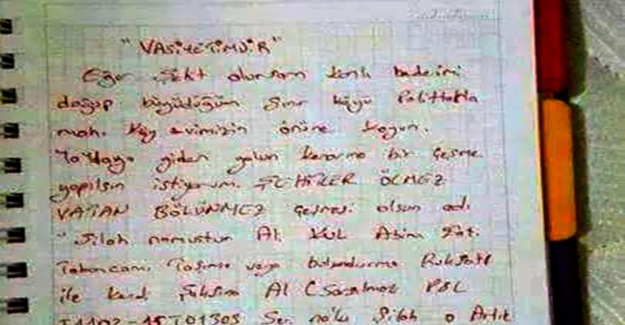 "VASİYETİMDİR"
Eğer Şehit olursam kanlı bedenimi
doğup büyüdüğüm Sınır köyü
mah. Köy evimizin önüne koyun.
giden yolun kenarına bir çeşme
yapılsın istiyorum. ŞEHİTLER ÖLMEZ
VATAN BÖLÜNMEZ çeşmesi olsun adı.
"Silah namustur Al. Kul Abim
Tabancamı Taşıma veya bulundurma Ruhsatı
ile kendi Şahsına Al (Sarsılmaz
Seri no'lu Silah o Artık